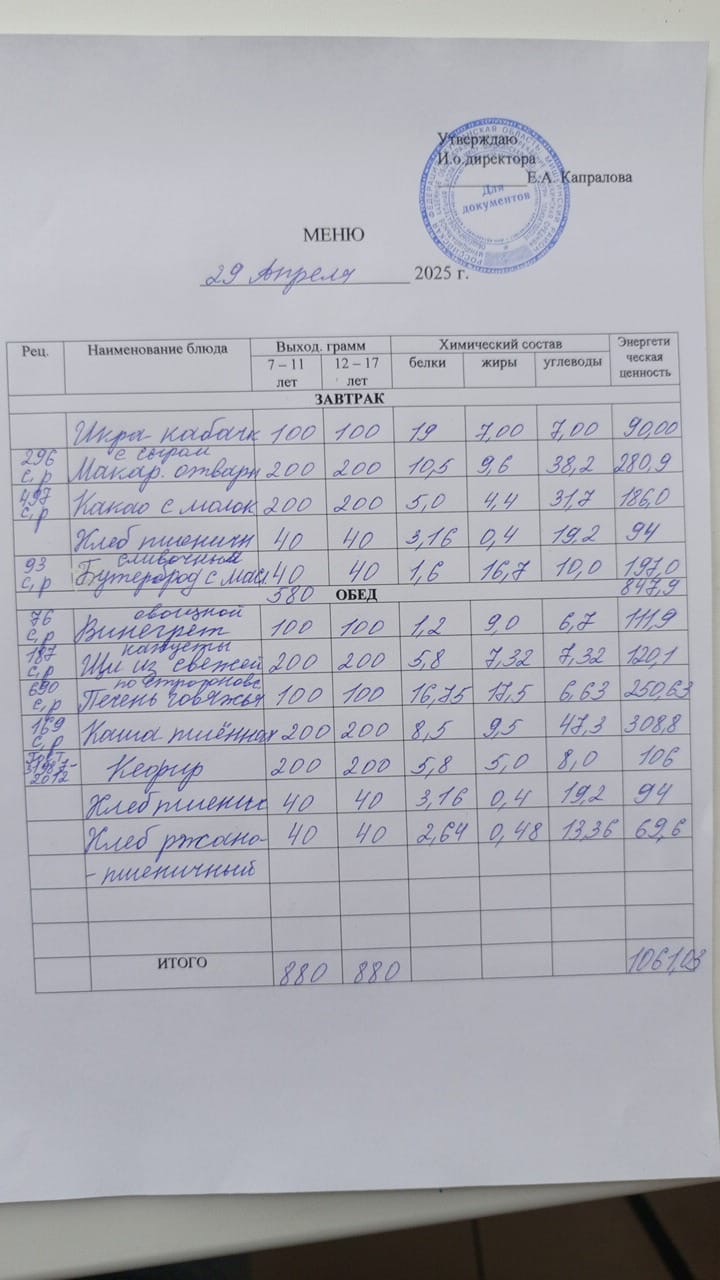 Утверждаю
И.о.директора
Е.А. Капралова
Для
документов
МЕНЮ
29 Апреля 2025 г.
Рец. Наименование блюда Выход. грамм Химический состав Энергети
ческая
ценность
7 – 11
лет 12 – 17
лет белки жиры углеводы
ЗАВТРАК
Икра кабачк 100 100 19 7,00 7,00 90,00
296
с,р с сыром
Макар. отварн 200 200 10,5 9,6 38,2 280,9
497
с,р Какао с молок 200 200 5,0 4,4 31,7 186,0
Хлеб пшеничн 40 40 3,16 0,4 19,2 94
93
с,р сливочным
Бутерброд с масл. 40 40 1,6 16,7 10,0 197,0
580 ОБЕД 847,9
76
с,р овощной
Винегрет 100 100 1,2 9,0 6,7 111,9
187
с,р капусты
Щи из свежей 200 200 5,8 7,32 7,32 120,1
690
с,р по строгоновс
Печень говяжья 100 100 16,75 17,5 6,63 250,63
169
с,р Каша пшённая 200 200 8,5 9,5 47,3 308,8
Гост
31987-
2012 Кефир 200 200 5,8 5,0 8,0 106
Хлеб пшенич 40 40 3,16 0,4 19,2 94
Хлеб ржано- 40 40 2,64 0,48 13,36 69,6
-пшеничный
ИТОГО 880 880 1061,03